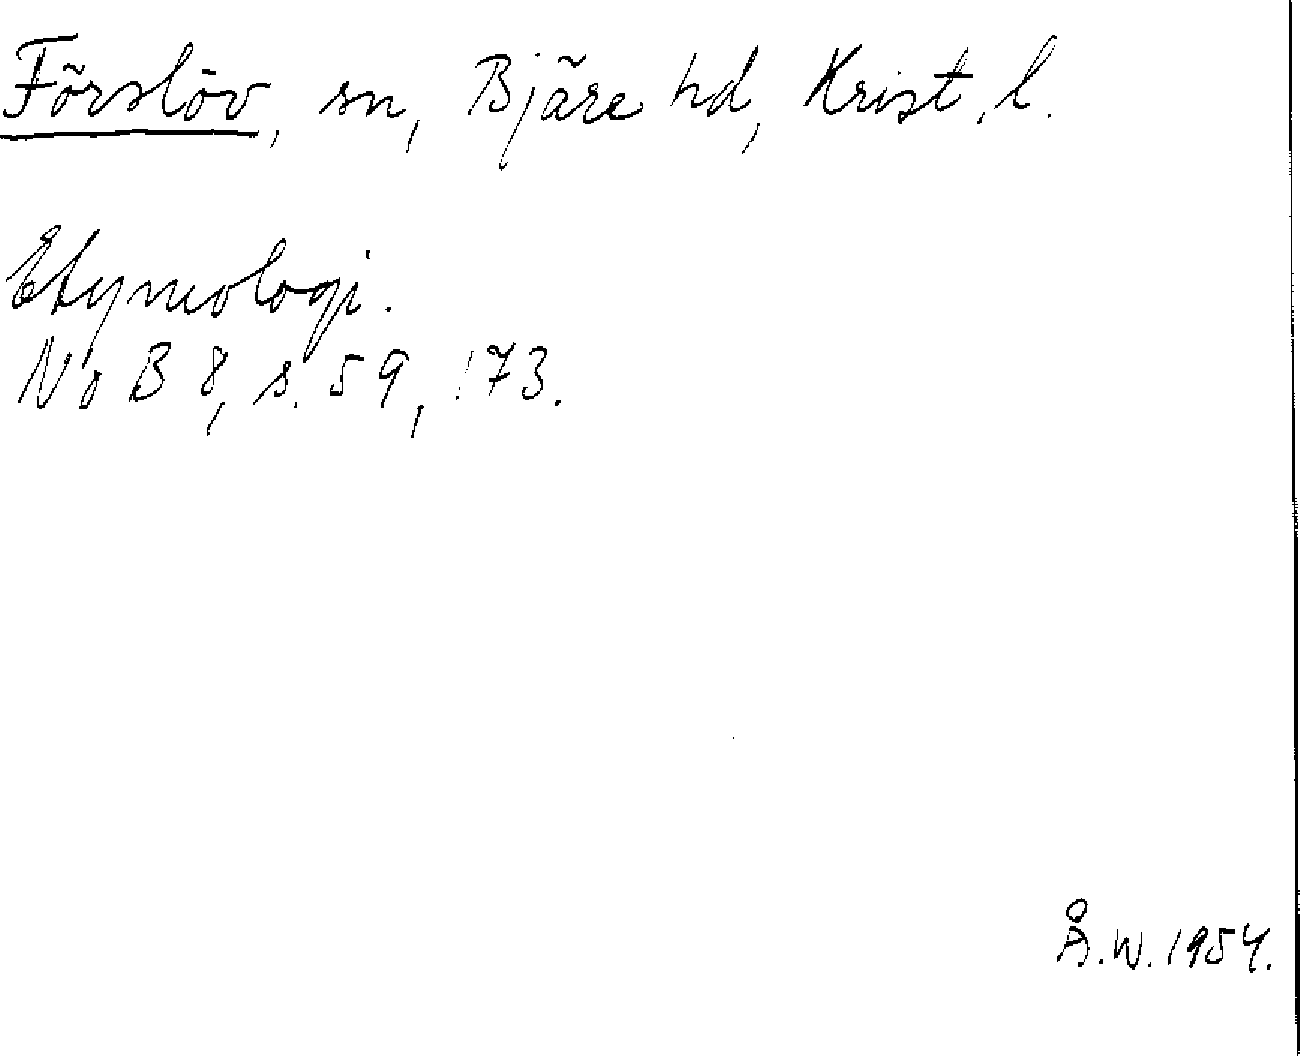 Förslöv, sn, Bjäre hd, Krist. l.
Etymologi.
NoB 8, s. 59, 173.
Å.W. 1954.